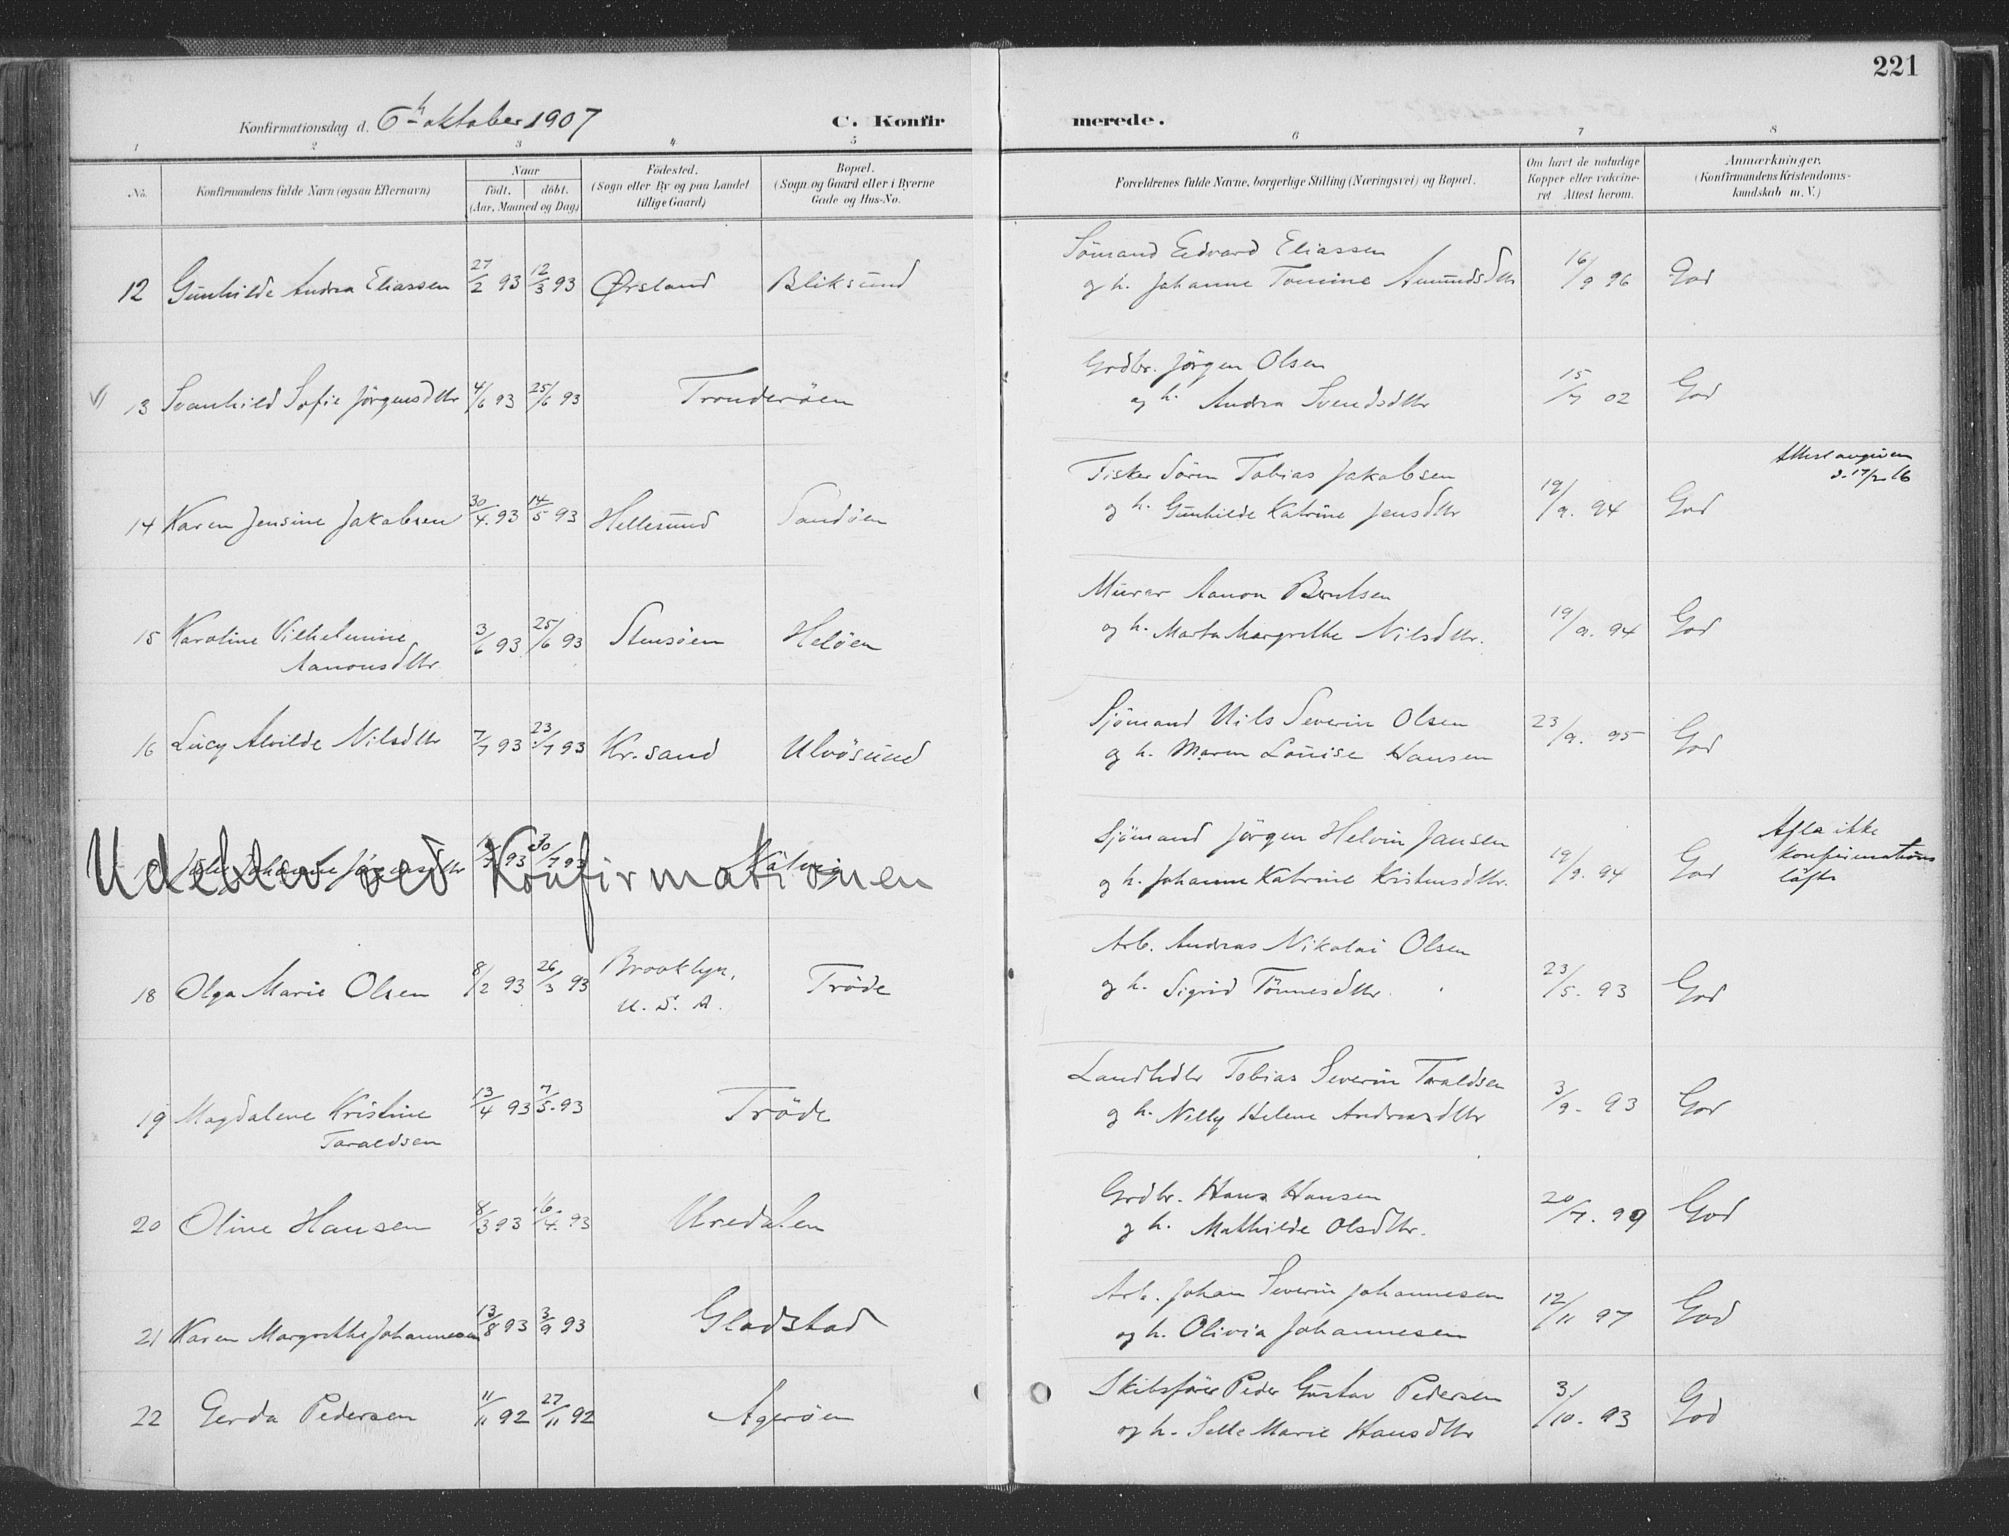 221
Konfirmationsdag d. 6te oktober 1907
C. Konfirmerede.
1 2 3 4 5 6 7 8
No. Konfirmandens fulde Navn (ogsaa Efternavn) Naar født. døbt. (Aar, Maaned og Dag) Fødested. (Sogn eller By og paa Landet tillige Gaard) Bopæl. (Sogn og Gaard eller i Byerne Gade og Hus-No. Forældrenes fulde Navne, borgerlige Stilling (Næringsvei) og Bopæl. Om havt de naturlige Kopper eller vakcineret Attest herom. Anmærkninger. (Konfirmandens Kristendomskundskab m. V.)
12 Gunhilde Andrea Eliassen 27/2 93 12/3 93 Ørsland Bliksund Sömand Edvard Eliassen 16/9 96 God
og h. Johanne Tomine Amundsdtr
13 Svanhild Sofie Jørgensdttr 4/6 93 25/6 93 Tronderöen Grdbr. Jörgen Olsen 15/7 02 God
og h. Andrea Svendsdttr
14 Karen Jensine Jakobsen 30/4. 93 14/5 93 Hellesund Sandöen Fisker Sören Tobias Jakobsen 19/9. 94 God Attest avgiven d. 17/2 16
og h. Gunhilde Katrine Jensdttr
15 Karoline Vilhelmine 3/6 93 25/6 93 Stensöen Helöen Murer Aanon Berntsen 19/9. 94 God
Aanonsdttr. og h. Marta Margrethe Nilsdttr.
16 Lucy Alvilde Nilsdttr 7/7 93 23/7 93 Kr.sand Ulvösund Sjömand Nils Severin Olsen 23/9. 95 God
og h. Maren Louise Hansen
Udeblev ved Konfirmationen
Johanne Jörgensdttr 93 30/7 93 Sjömand Jörgen Helvin Jansen 19/9. 94 God Afla ikke konfirmations löfte
og h. Johanne Katrine Kristensdttr.
18 Olga Marie Olsen 8/2 93 26/3 93 Brooklyn, U. S. A. Tröde Arb. Andreas Nikolai Olsen 23/5. 93 God
og h. Sigrid Tönnesdttr.
19 Magdalene Kristine 13/4 93 7/5. 93 Tröde Landhdlr Tobias Severin Taraldsen 3/9. 93 God
Taraldsen og h. Nelly Helene Andreasdttr
20 Oline Hansen 8/3 93 16/4. 93 Uredalen Grdbr. Hans Hansen 20/7. 99 God
og h. Mathilde Olsdttr.
21 Karen Margrethe Johannesen 13/8 93 3/9 93 Gladstad Arb. Johan Severin Johannesen 12/11 97 God
og h. Olivia Johannesen
22 Gerda Pedersen 11/11 92 27/11 92 Ageröen Skibsförer Peder Gustav Pedersen 3/10. 93 God
og h. Selle Marie Hansdttr